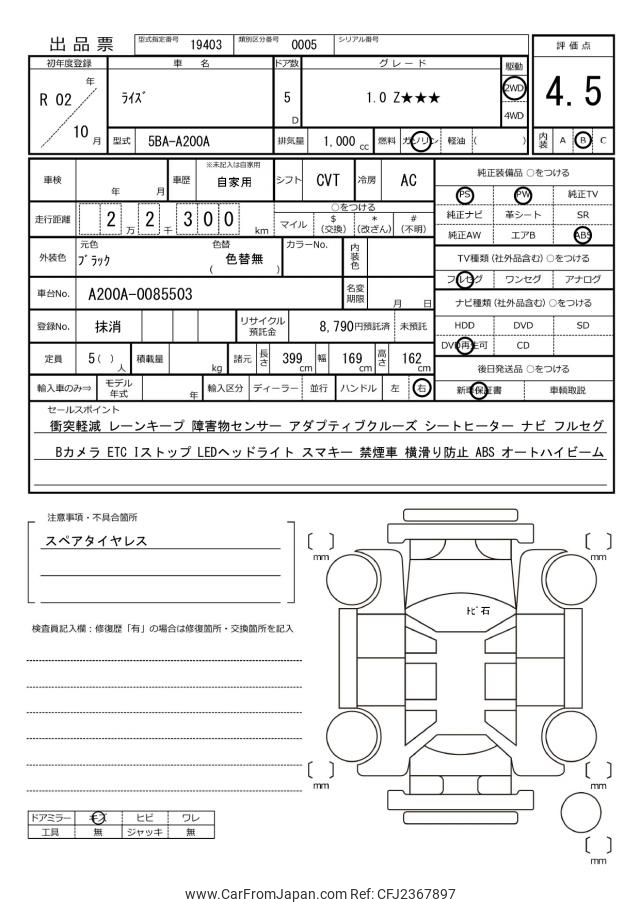 出品票
型式指定番号 19403 類別区分番号 0005 シリアル番号
評価点
4.5
内装 A B C
初年度登録 車名 ドア数 グレード 駆動
R 02 年 ﾗｲｽﾞ 5 D 1.0 Z★★★ 2WD
4WD
10 月 型式 5BA-A200A 排気量 1,000 cc 燃料 ガソリン 軽油 ( )
車検 年 月 車歴 ※未記入は自家用 自家用 シフト CVT 冷房 AC
走行距離 2 万 2 千 3 0 0 km
○をつける
マイル $(交換) *(改ざん) #(不明)
外装色 元色 ﾌﾞﾗｯｸ 色替 ( 色替無 ) カラーNo. 内装色
車台No. A200A-0085503 名変期限 月 日
登録No. 抹消 リサイクル預託金 8,790円預託済 未預託
定員 5( ) 人 積載量 kg 諸元 長さ 399 cm 幅 169 cm 高さ 162 cm
輸入車のみ⇒ モデル年式 年 輸入区分 ディーラー 並行 ハンドル 左 右
純正装備品 ○をつける
PS PW 純正TV
純正ナビ 革シート SR
純正AW エアB ABS
TV種類 (社外品含む) ○をつける
フルセグ ワンセグ アナログ
ナビ種類 (社外品含む) ○をつける
HDD DVD SD
DVD再生可 CD
後日発送品 ○をつける
新車保証書 車輌取説
セールスポイント
衝突軽減 レーンキープ 障害物センサー アダプティブクルーズ シートヒーター ナビ フルセグ
Bカメラ ETC Iストップ LEDヘッドライト スマキー 禁煙車 横滑り防止 ABS オートハイビーム
注意事項・不具合箇所
スペアタイヤレス
検査員記入欄：修復歴「有」の場合は修復箇所・交換箇所を記入
[ ] mm
[ ] mm
ﾄﾋﾞ石
[ ] mm
[ ] mm
[ ] mm
ドアミラー キズ ヒビ ワレ
工具 無 ジャッキ 無
www.CarFromJapan.com Ref: CFJ2367897